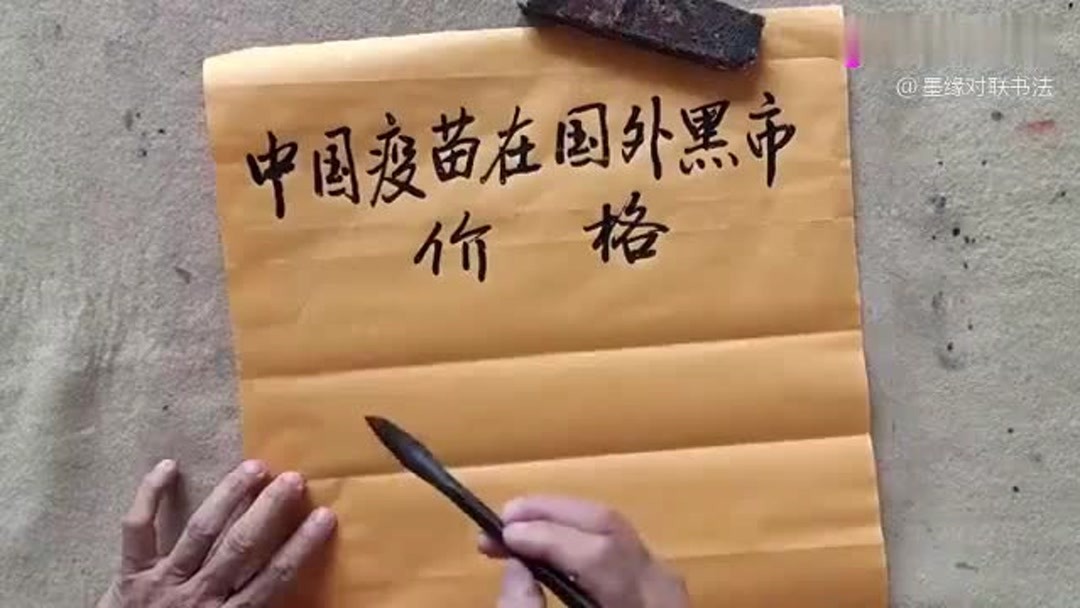 @墨缘对联书法
中国疫苗在国外黑市
价格